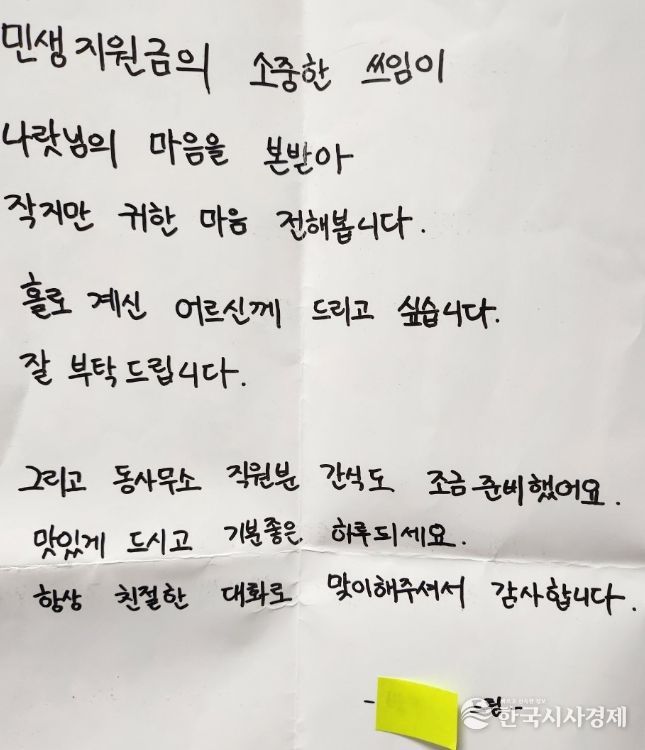 민생지원금의 소중한 쓰임이
나랏님의 마음을 본받아
작지만 귀한 마음 전해봅니다.
홀로 계신 어르신께 드리고 싶습니다.
잘 부탁드립니다.
그리고 동사무소 직원분 간식도 조금준비했어요.
맛있게 드시고 기분좋은 하루되세요.
항상 친절한 대화로 맞이해주셔서 감사합니다.
- 드림-
한국시사경제